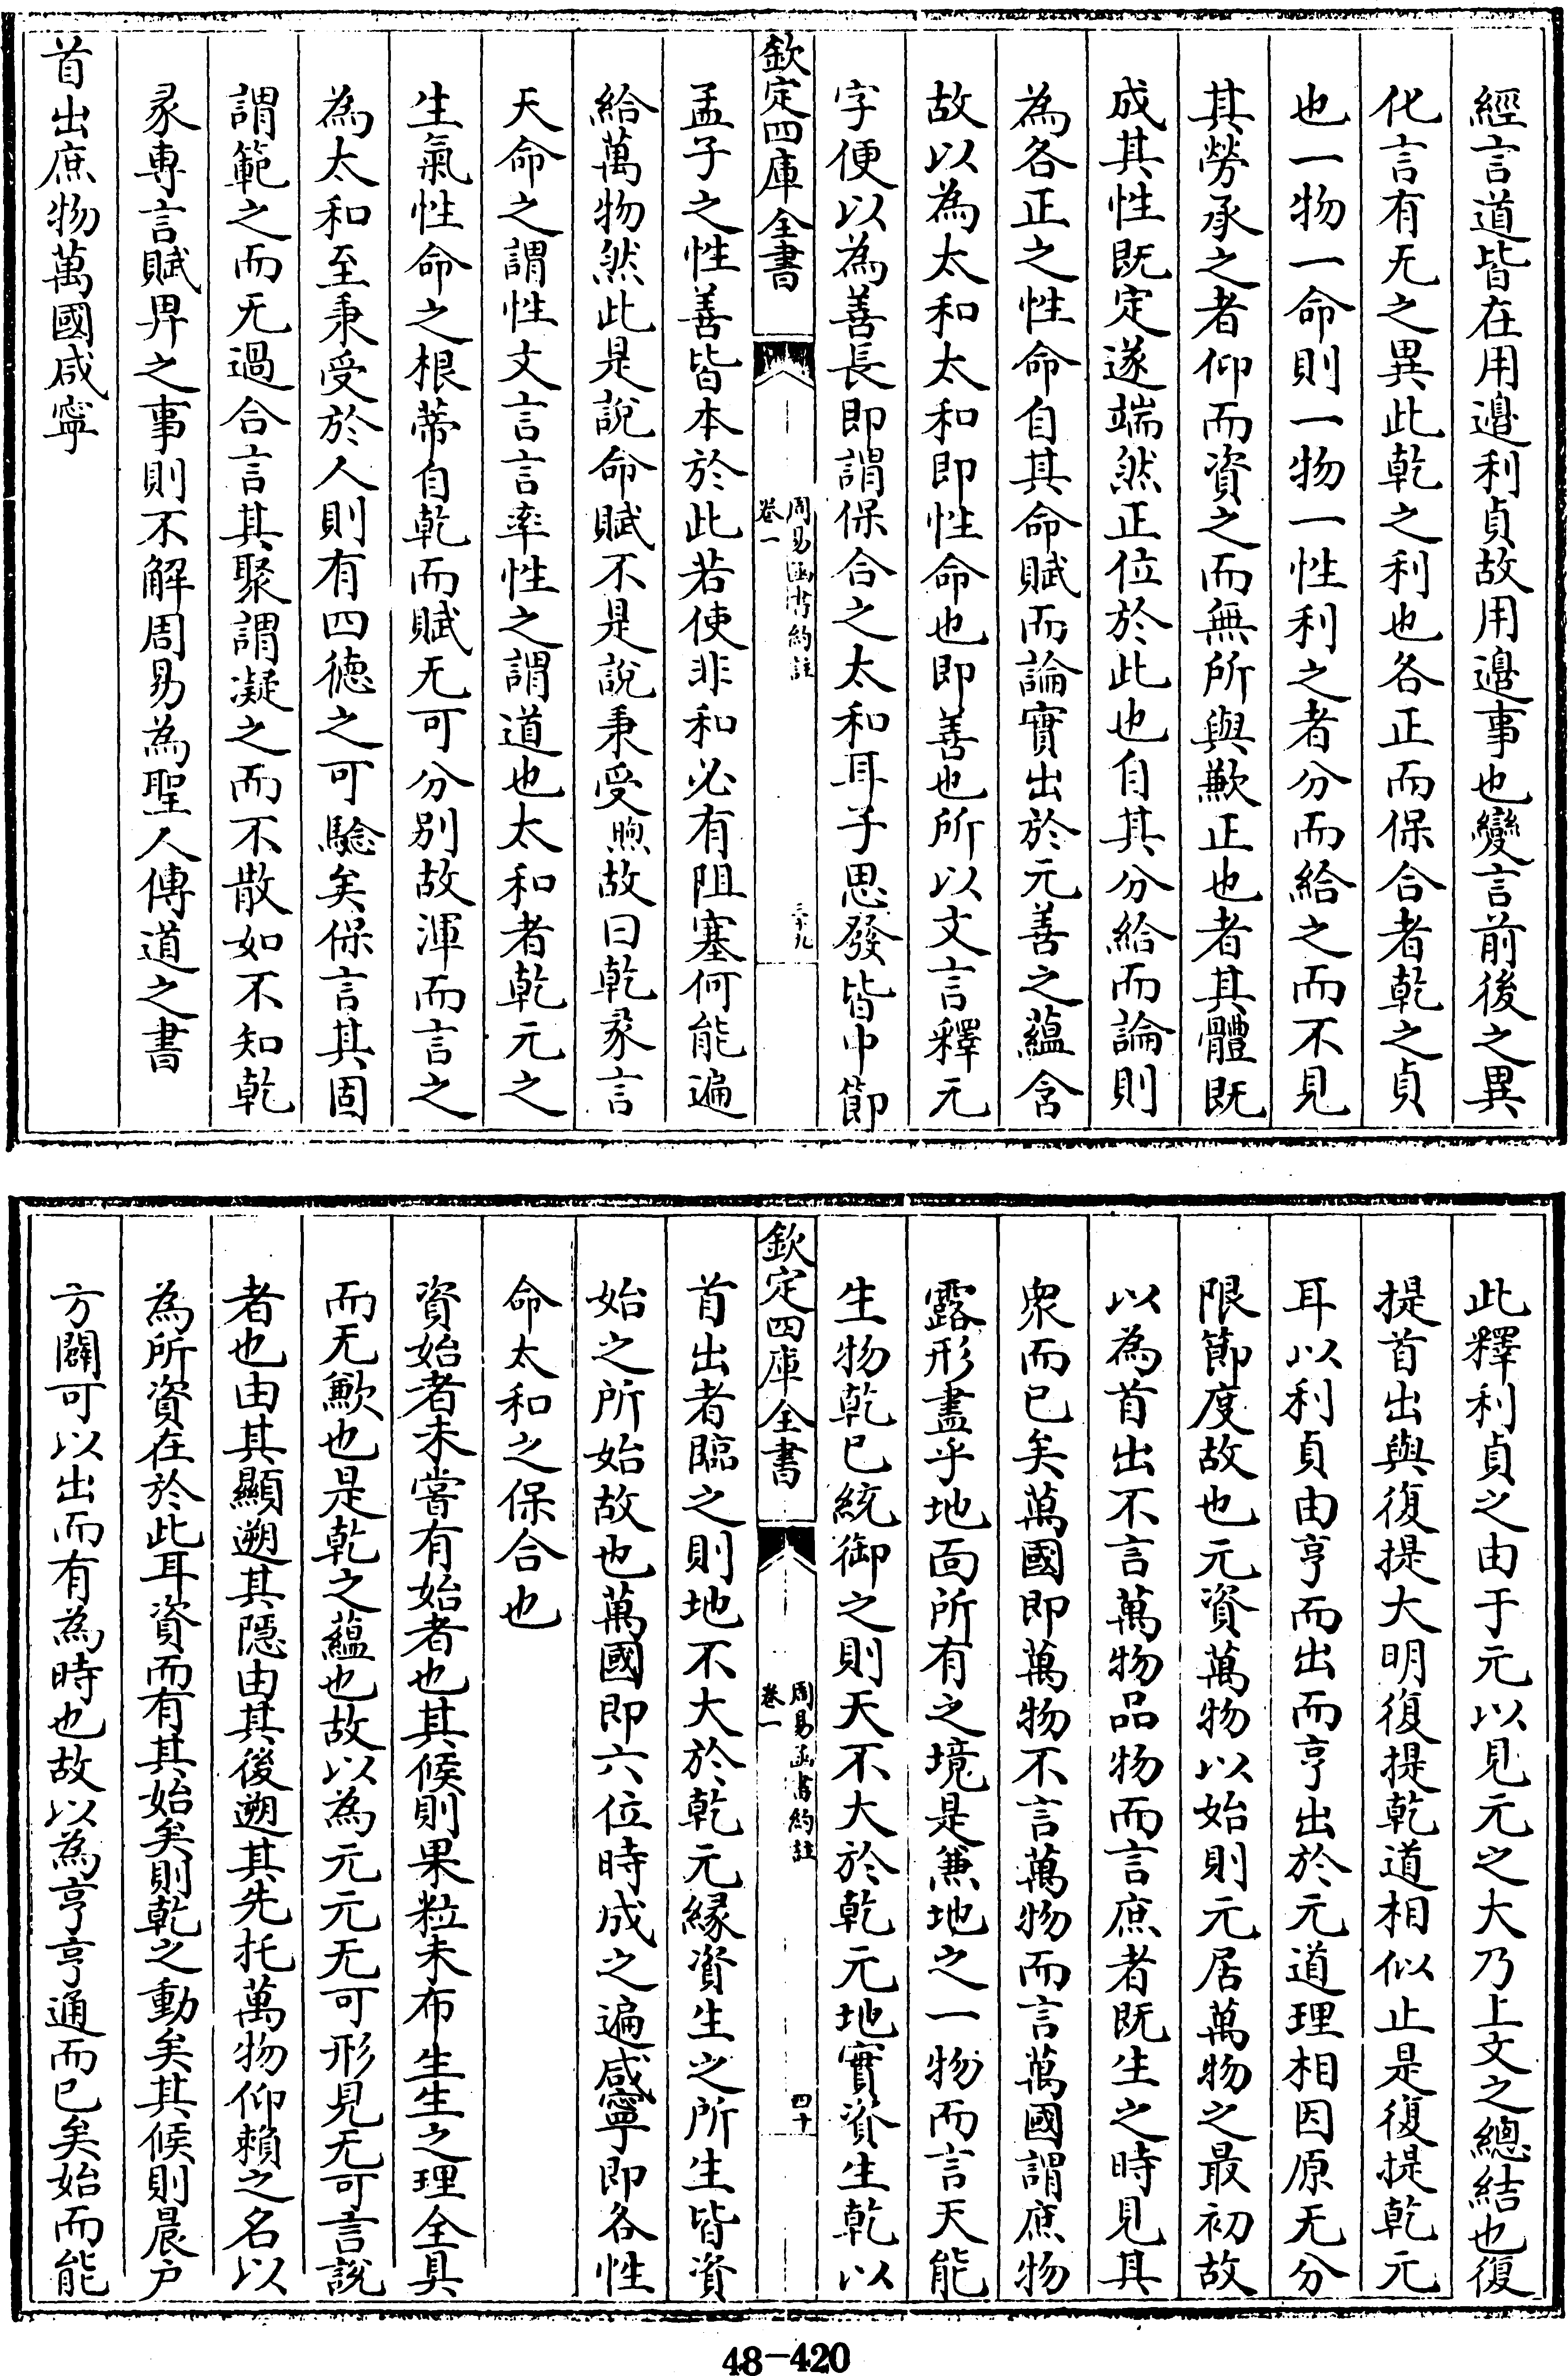 經言道皆在用邉利貞故用邉事也變言前後之異
化言有无之異此乾之利也各正而保合者乾之貞
也一物一命則一物一性利之者分而給之而不見
其勞承之者仰而資之而無所與歉正也者其體既
成其性既定遂端然正位於此也自其分給而論則
為各正之性命自其命賦而論實出於元善之蘊含
故以為太和太和即性命也即善也所以文言釋元
字便以為善長即謂保合之太和耳子思發皆中節
欽定四庫全書
周易函書約註
卷一
三十九
孟子之性善皆本於此若使非和必有阻塞何能遍
給萬物然此是說命賦不是說秉受煦故曰乾彖言
天命之謂性文言言率性之謂道也太和者乾元之
生氣性命之根蒂自乾而賦无可分别故渾而言之
為太和至秉受於人則有四德之可驗矣保言其固
謂範之而无過合言其聚謂凝之而不散如不知乾
彖專言賦畀之事則不解周易為聖人傳道之書
首出庶物萬國咸寧
此釋利貞之由于元以見元之大乃上文之總結也復
提首出與復提大明復提乾道相似止是復提乾元
耳以利貞由亨而出而亨出於元道理相因原无分
限節度故也元資萬物以始則元居萬物之最初故
以為首出不言萬物品物而言庶者既生之時見其
衆而已矣萬國即萬物不言萬物而言萬國謂庶物
露形盡乎地面所有之境是兼地之一物而言天能
生物乾已統御之則天不大於乾元地實資生乾以
欽定四庫全書
周易函書約註
卷一
四十
首出者臨之則地不大於乾元緣資生之所生皆資
始之所始故也萬國即六位時成之遍咸寧即各性
命太和之保合也
資始者未嘗有始者也其候則果粒未布生生之理全具
而无歉也是乾之蘊也故以為元元无可形見无可言說
者也由其顯遡其隠由其後遡其先托萬物仰賴之名以
為所資在於此耳資而有其始矣則乾之動矣其候則晨户
方闢可以出而有為時也故以為亨亨通而已矣始而能
48-420